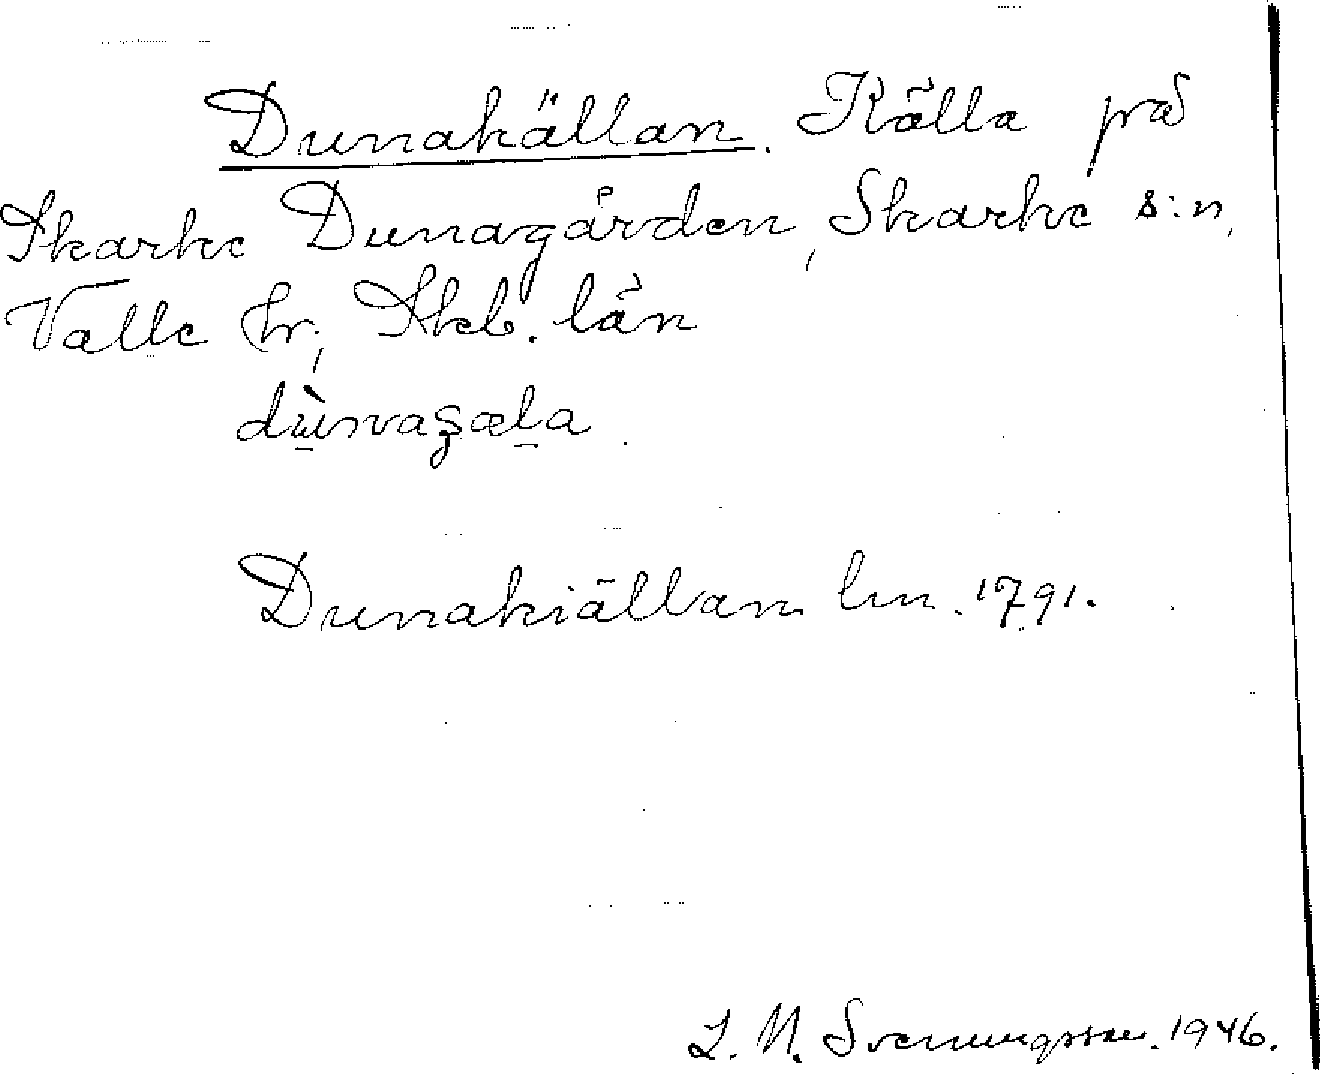 Dunakällan. Källa på
Skarke Dunagården, Skarke s:n,
Valle hr, Skb. län
dùnaʂæla
Dunakiällan lm. 1791.
L. N. Svenungsson. 1946.